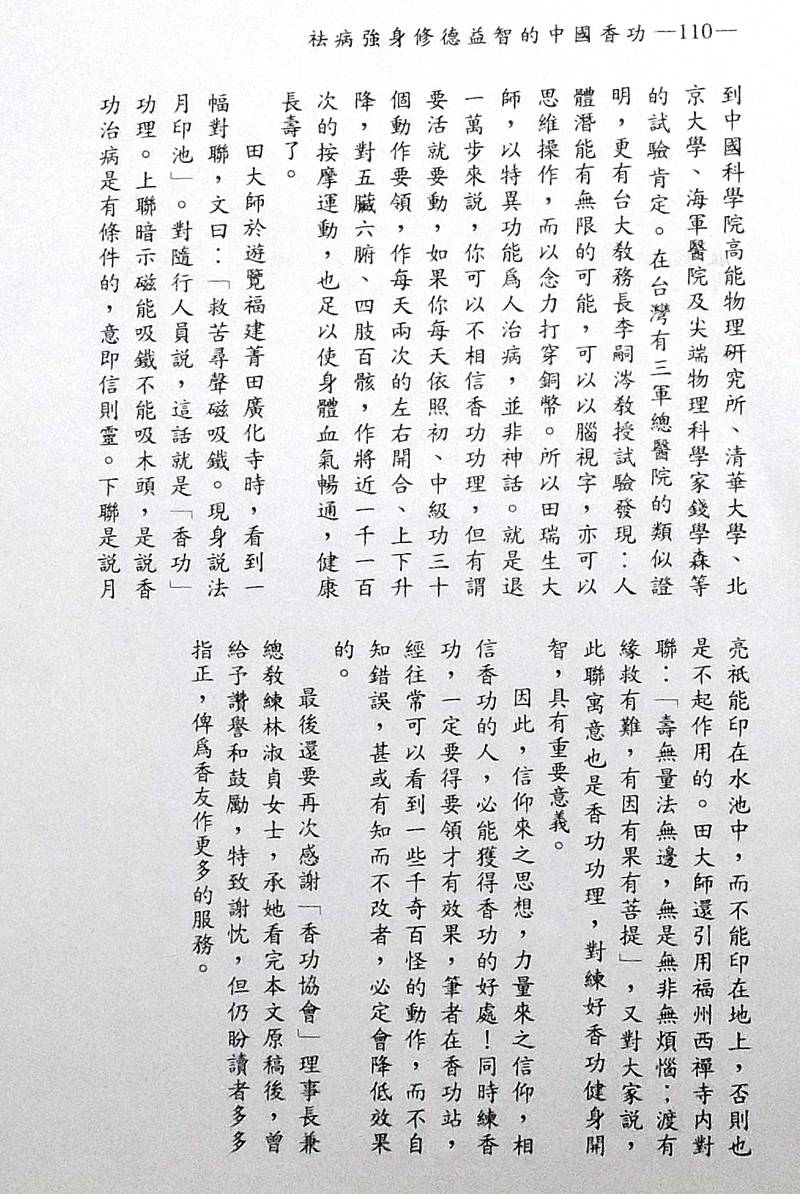 祛病強身修德益智的中國香功 —110—
到中國科學院高能物理研究所、清華大學、北
京大學、海軍醫院及尖端物理科學家錢學森等
的試驗肯定。在台灣有三軍總醫院的類似證
明，更有台大教務長李嗣涔教授試驗發現：人
體潛能有無限的可能，可以以腦視字，亦可以
思維操作，而以念力打穿銅幣。所以田瑞生大
師，以特異功能爲人治病，並非神話。就是退
一萬步來說，你可以不相信香功功理，但有謂
要活就要動，如果你每天依照初、中級功三十
個動作要領，作每天兩次的左右開合、上下升
降，對五臟六腑、四肢百骸，作將近一千一百
次的按摩運動，也足以使身體血氣暢通，健康
長壽了。
田大師於遊覽福建菁田廣化寺時，看到一
幅對聯，文曰：「救苦尋聲磁吸鐵。現身說法
月印池」。對隨行人員說，這話就是「香功」
功理。上聯暗示磁能吸鐵不能吸木頭，是說香
功治病是有條件的，意即信則靈。下聯是說月
亮祇能印在水池中，而不能印在地上，否則也
是不起作用的。田大師還引用福州西禪寺內對
聯：「壽無量法無邊，無是無非無煩惱；渡有
緣救有難，有因有果有菩提」，又對大家說，
此聯寓意也是香功功理，對練好香功健身開
智，具有重要意義。
因此，信仰來之思想，力量來之信仰，相
信香功的人，必能獲得香功的好處！同時練香
功，一定要得要領才有效果，筆者在香功站，
經往常可以看到一些千奇百怪的動作，而不自
知錯誤，甚或有知而不改者，必定會降低效果
的。
最後還要再次感謝「香功協會」理事長兼
總教練林淑貞女士，承她看完本文原稿後，曾
給予讚譽和鼓勵，特致謝忱，但仍盼讀者多多
指正，俾爲香友作更多的服務。